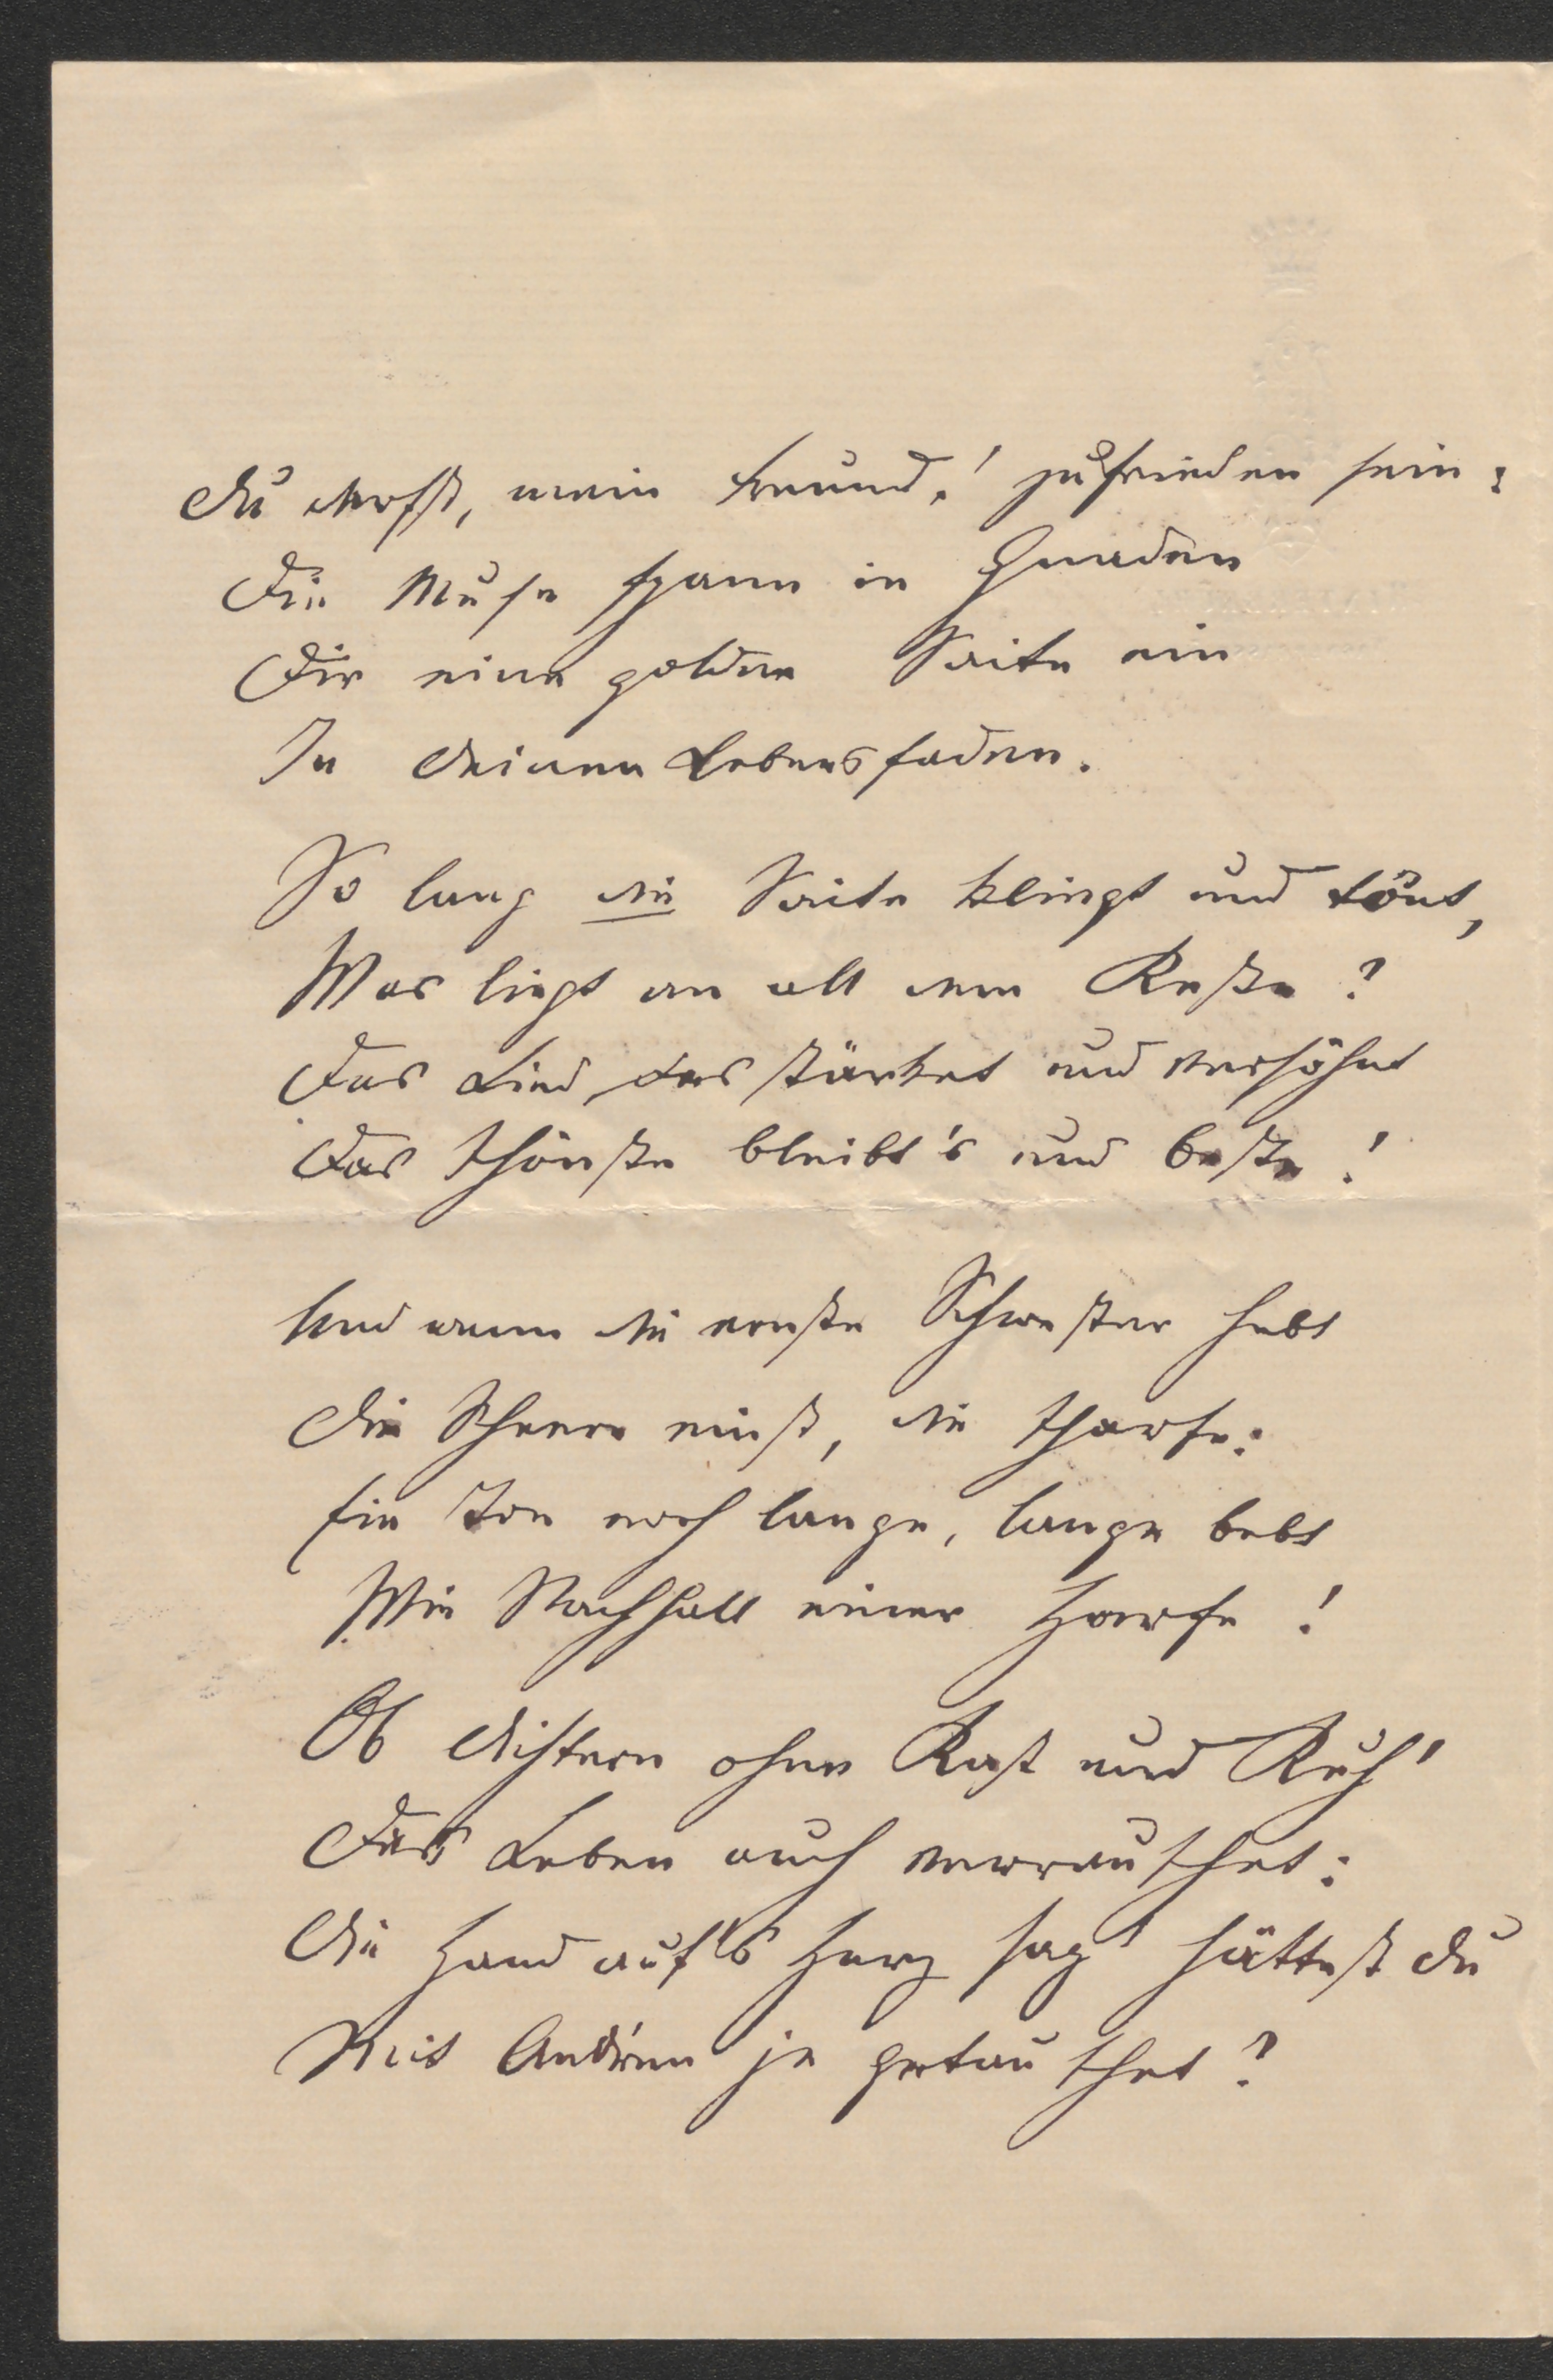 Du darfst, mein Freund! zufrieden sein:
Die Muse spann in Gnaden
Dir eine goldne Saite ein
In deinen Lebensfaden.
So lang die Saite klingt und tönt,
Was liegt an all dem Reste?
Das Lied das stärket und versöhnt
Das schönste bleibt's und beste!
Und wenn die ernste Schwester hebt
Die Scheere einst, die scharfe:
Ein Ton noch lange, lange bebt
Wie Nachhall einer Harfe!
Ob düstern ohne Rast und Ruh'
Das Leben auch verrauschet:
Die Hand auf's Herz sag' hättest du
Mit Andren je getauschet?